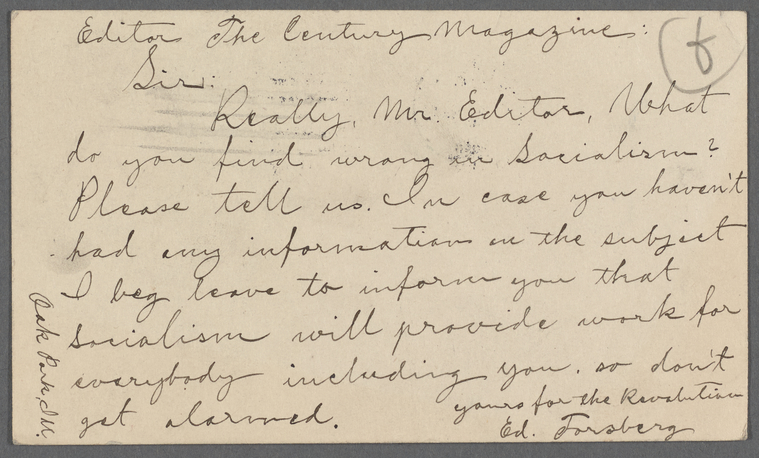 Editor The Century Magazine:
Sir:
Really, Mr. Editor, What
do you find wrong in Socialism?
Please tell us. In case you haven't
had any information on the subject
I beg leave to inform you that
Socialism will provide work for
everybody including you. so don't
get alarmed.
yours for the Revolution
Ed. Forsberg
Oak Park, Ill.